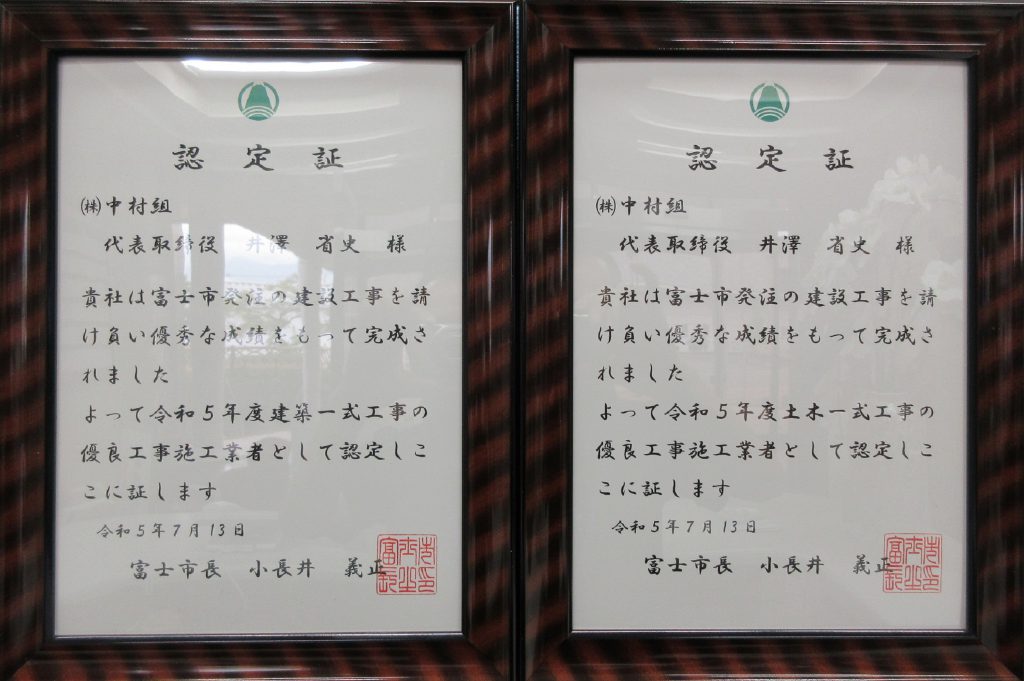 認定証
㈱中村組
代表取締役 井澤 省史 様
貴社は富士市発注の建設工事を請
け負い優秀な成績をもって完成さ
れました
よって令和5年度建築一式工事の
優良工事施工業者として認定しこ
こに証します
令和5年7月13日
富士市長 小長井 義正
認定証
㈱中村組
代表取締役 井澤 省史 様
貴社は富士市発注の建設工事を請
け負い優秀な成績をもって完成さ
れました
よって令和5年度土木一式工事の
優良工事施工業者として認定しこ
こに証します
令和5年7月13日
富士市長 小長井 義正